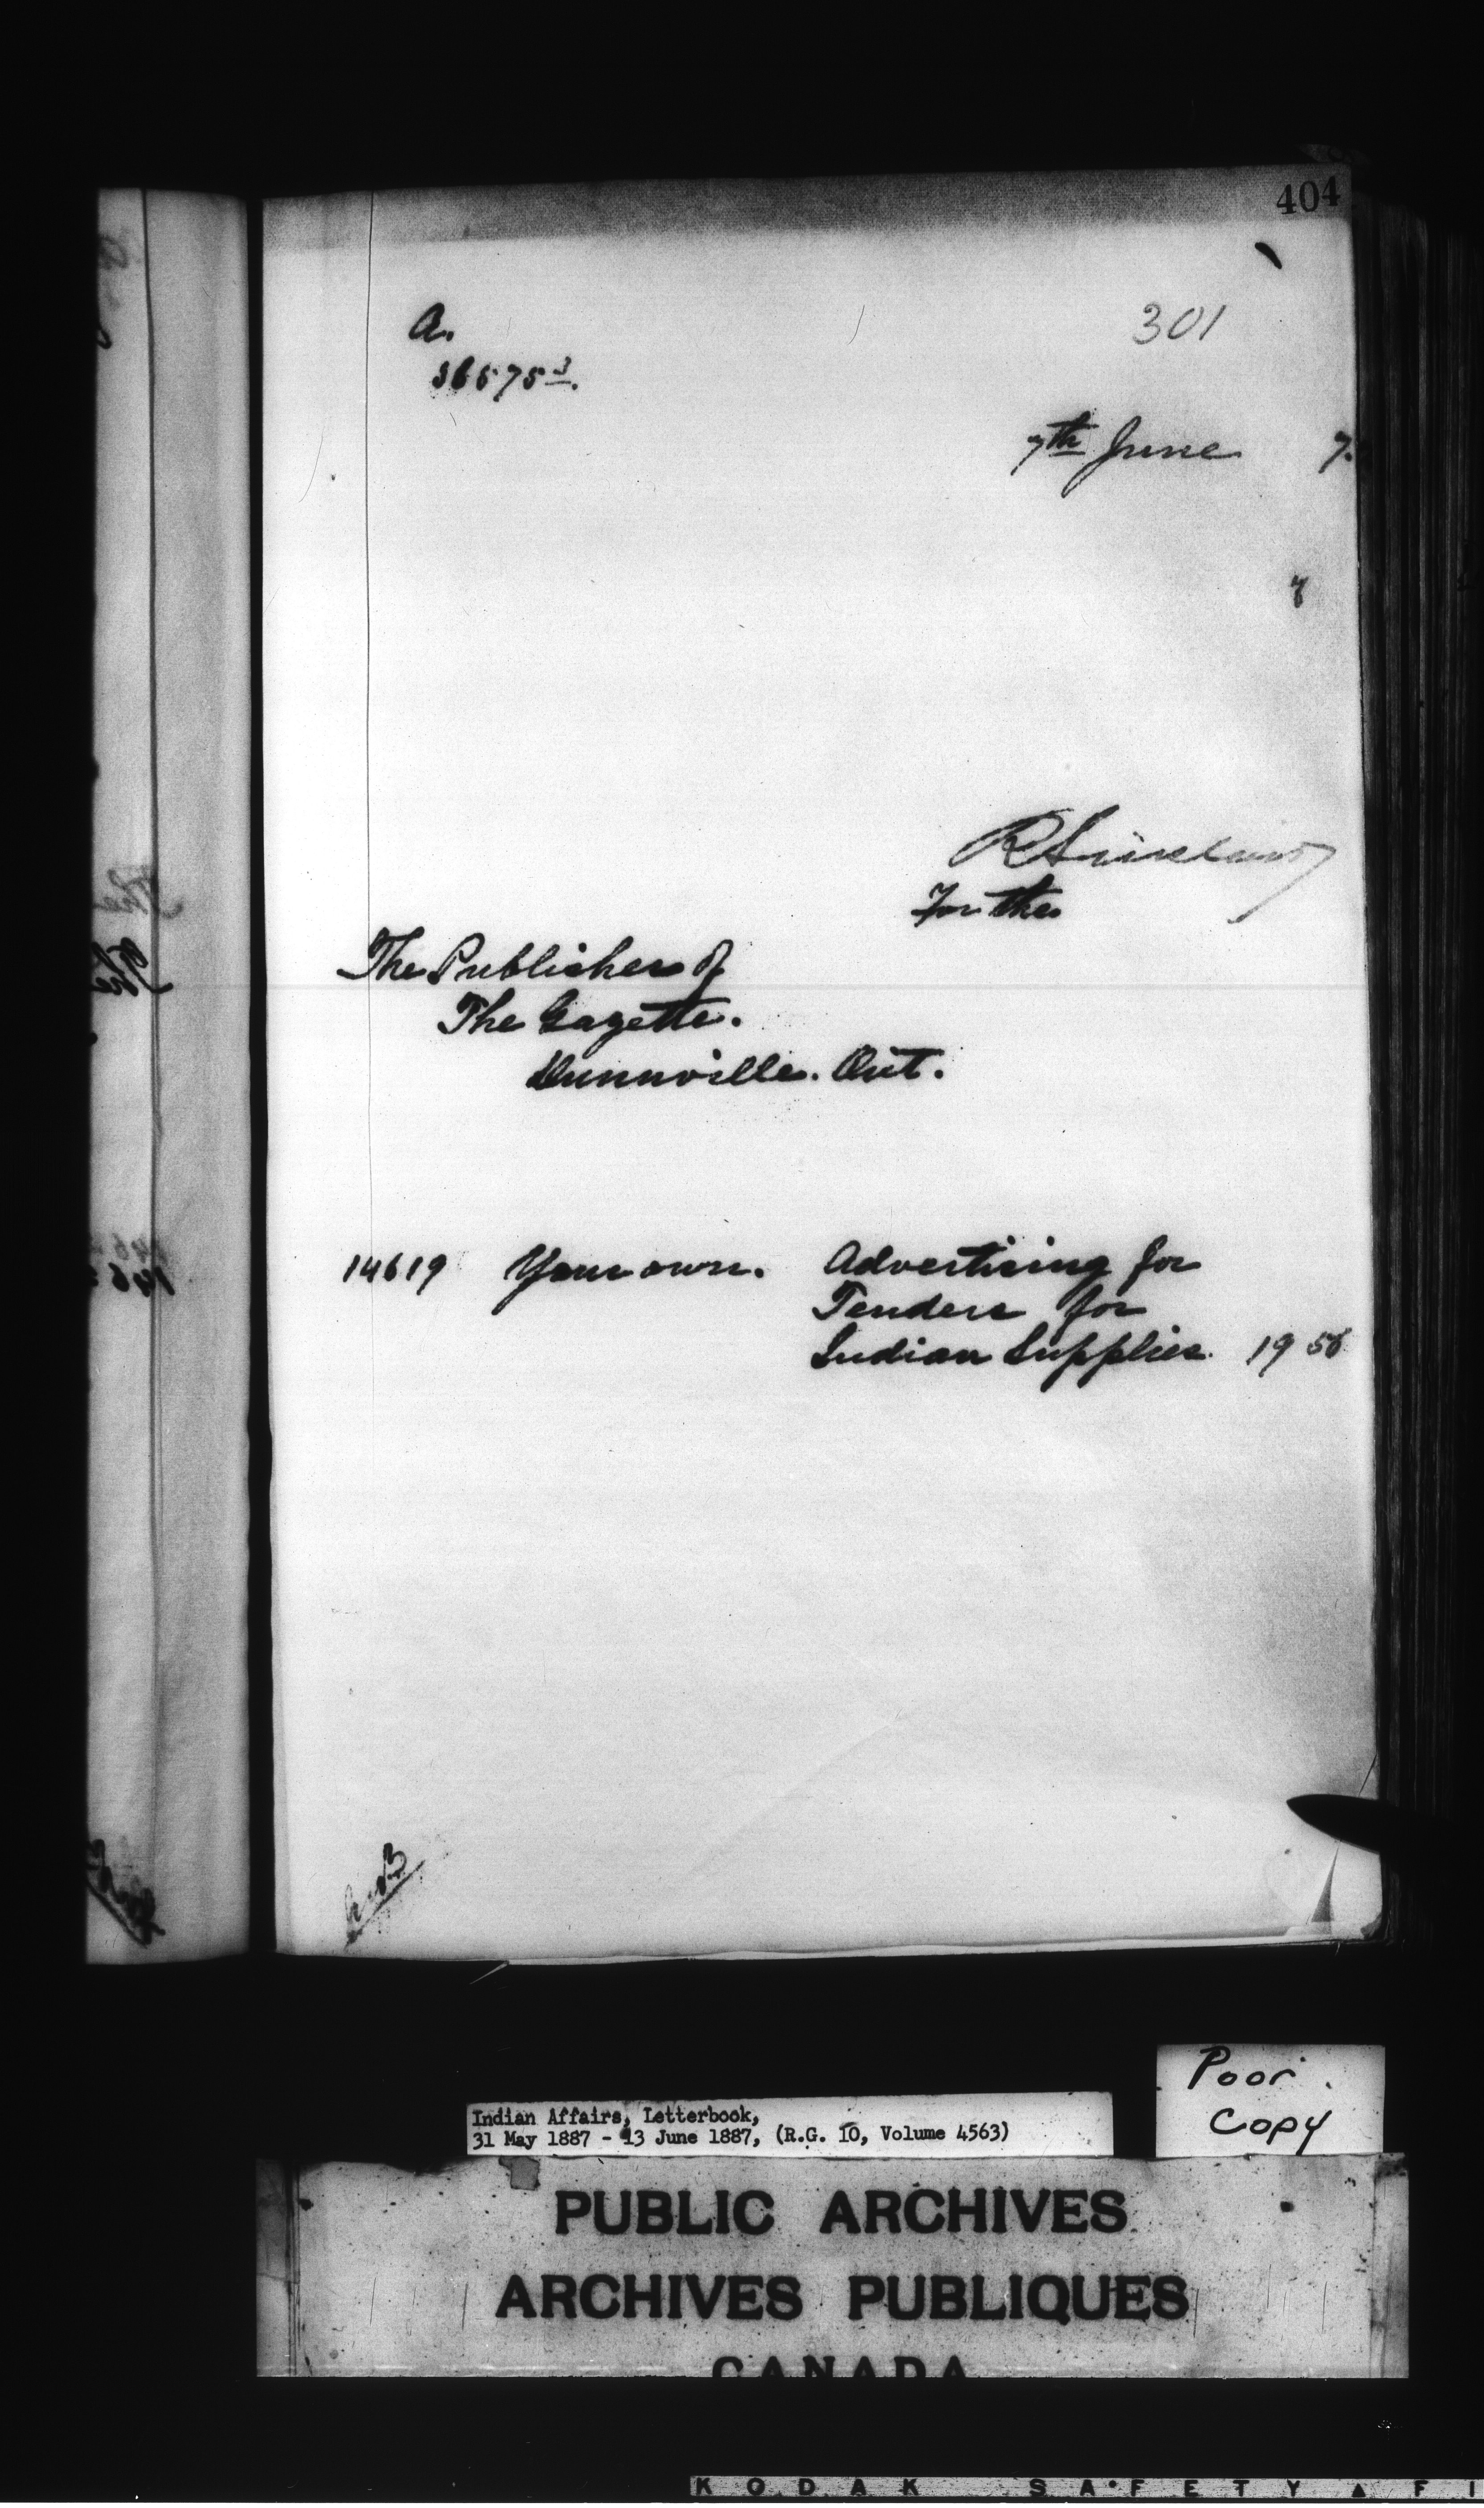 404
301
A.
36575³.
7th June 7.
R Sinclair
For the
The Publisher of
The Gazette.
Dunnville. Ont.
14619 Your own. Advertising for
Tenders for
Indian Supplies. 19 56
Poor
Copy
Indian Affairs, Letterbook,
31 May 1887 - 13 June 1887, (R.G. 10, Volume 4563)
PUBLIC ARCHIVES
ARCHIVES PUBLIQUES
CANADA
KODAK SAFETY FI